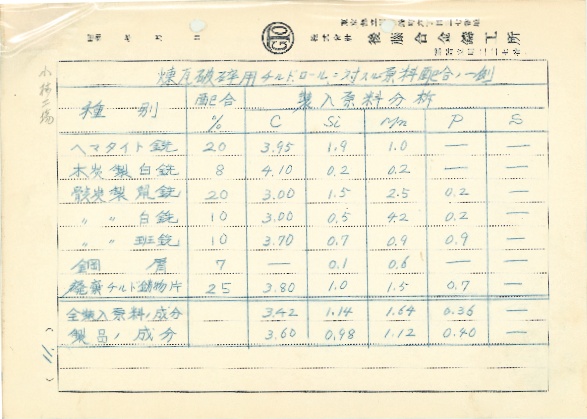 昭和 年 月 日
GTO
株式会社 後藤合金鋳工所
小林工場
煉瓦破碎用チルドロールニ対スル原料配合ノ一例
種別 配合% 装入原料分析
C Si Mn P S
ヘマタイト銑 20 3.95 1.9 1.0 — —
木炭製白銑 8 4.10 0.2 0.2 — —
骸炭製鼠銑 20 3.00 1.5 2.5 0.2 —
〃 〃 白銑 10 3.00 0.5 4.2 0.2 —
〃 〃 斑銑 10 3.70 0.7 0.9 0.9 —
鋼屑 7 — 0.1 0.6 — —
廃棄チルド鋳物片 25 3.80 1.0 1.5 0.7 —
全装入原料ノ成分 3.42 1.14 1.64 0.36 —
製品ノ成分 3.60 0.98 1.12 0.40 —
(11.)